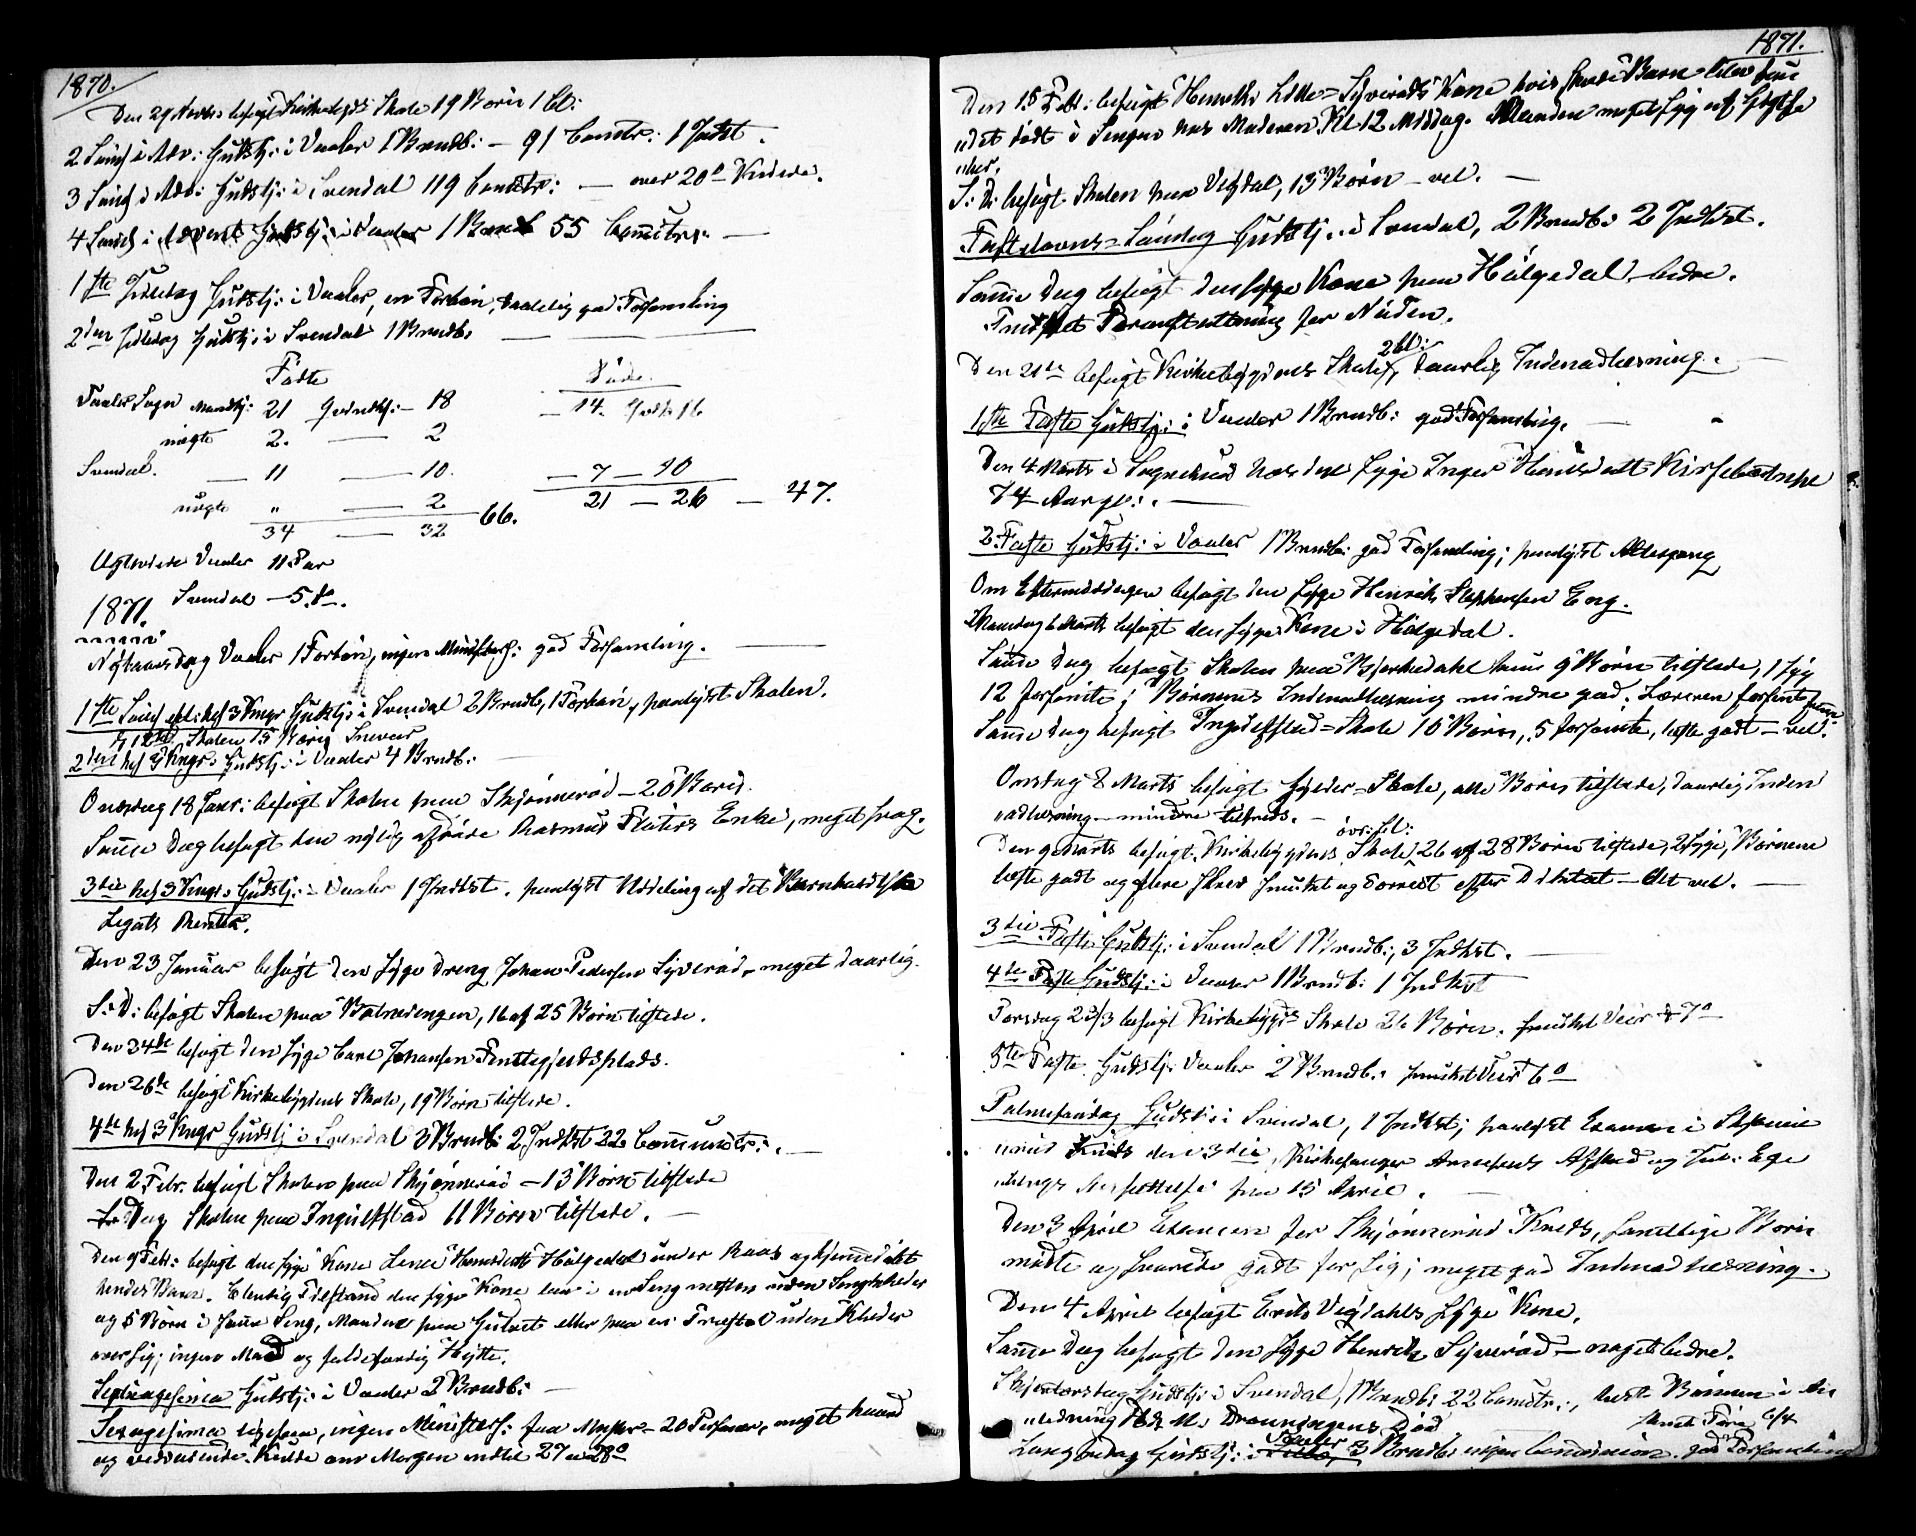 1870.
Den 29 Novbr: besøgt Kirkebygds Skole 19 Børn 1 Cl:
2 Sønd i Adv: Gudstj: i Vaaler 1 Brudv: – 91 Comtr: 1 Indst.
3 Sønd i Adv: Gudstj: i Svendal 119 Comtr: — over 20° Kulde.
4 Sønd i Advent Gudstj: i Vaaler 1 55 Comtr: —
1ste Juledag Gudstj: i Vaaler, en Forbøn, god Forsamling
2den Juledag Gudstj: i Svendal 1 Brudv.
Fødte Døde.
Vaaler Sogn Mandkj: 21 Qvindkj: – 18 – 14. Qvdk 16
uægte 2. — 2
Svendal. — 11 — 10. – 7 – 10
uægte " — 2 66. 21 – 26 – 47.
34 — 32
Ægteviede Vaaler 11 Par
Svendal – 5. do.
1871.
Nytaarsdag Vaaler 1 Forbøn, ingen god Forsamling. —
1ste Sønd eft: hel 3 Kngr Gudstj: i Svendal 2 Brudv, 1 Forbøn, paalyst Skolen.
Skolen 15 Børn Sneveir
2den hel 3 Kngr: Gudstj: i Vaaler 4 Brudv: —
Onsdag 18 Janr: besøgt Skolen paa Skjønnerød – 20 Børn.
Samme Dag besøgt den nylig afdøde Rasmus Enke, meget svag.
3die hel 3 Kngr: Gudstj: – Vaaler 1 Indtst. paalyst Uddeling af det
Legats Renter.
Den 23 Januar besøgt den syge Dreng Johan Pedersen Syverød, meget daarlig.
S: D: besøgt Skolen paa 16 af 25 Børn tilstede.
Den 24de besøgt den syge Carl Johansen
Den 26de besøgt Kirkebygdens Skole, 19 Børn tilstede.
4de hel 3 Kngr Gudstj i Svendal 3 Brudv: 2 Indtst 22 Communictr: —
Den 2 Febr. besøgt Skolen paa Skjønnerød – 13 Børn tilstede
S. Dag Skolen paa Ingulfstad 11 Børn tilstede. —
Den 9 Febr: besøgt den syge Kone Lene Hansdatt Hølgedal under Raas og hjemmedøbt
hendes Barn. Elendig Tilstand den syge Kone laa i en Seng næsten uden Sengeklæder
og 5 Børn i samme Seng, Manden paa Gulvet eller paa en Træstol uden Klæder
over sig; ingen Mad og faldefærdig Hytte.
Septuagesima Gudstj: i Vaaler 2 Brudv: —
Sexagesima ingen fra Moss – 20 Personer, meget haard
og vedvarende Kulde om Morgen indtil 27 a 28°
1871.
Den 15 Febr: besøgt Henriks Lille-Syverøds Kone hvis
født i Sengen hos Moderen Kl 12 Middag. Manden meget syg af Gigtfe
ber.
S: D: besøgt Skolen paa Vegdal, 13 Børn – vel. —
Fastelavns-Søndag Gudstj: i Svendal, 2 Brudv: 2 Indtst.
Samme Dag besøgt den syge Kone paa Hølgedal, bedre.
Truffet Foranstaltning for Nøden.
Den 21de besøgt Kirkebygdens Skole, 2 Cl: daarlig Indenadlæsning. —
1ste Faste Gudstj: i Vaaler 1 Brudv: god Forsamling. —
Den 4 Marts i Sognebud hos den syge Inger Hansdatt
74 Aar gl: —
2 Faste Gudstj: i Vaaler 1 Brudv: god Forsamling; paalyst Altergang
Om Eftermiddagen besøgt den syge Henrik Stephensen Eng.
Mandag 6 Marts besøgt den syge Kone i Hølgedal.
Samme Dag besøgt Skolen paa Bjerkedahl kun 9 Børn tilstede, 1 syg
12 forsømte; Børnenes Indenadlæsning mindre god. Læreren
Samme Dag besøgt Ingulfstad-Skole 10 Børn, 5 forsømte, læste godt – vel.
Onsdag 8 Marts besøgt Skole, alle Børn tilstede, daarlig Inden
adlæsning – mindre tilfreds. –
Den 9 Marts besøgt Kirkebygdens Skole, øvr: Cl: 26 af 28 Børn tilstede, 2 syge, Børnene
læste godt og flere skrev smukt og correct efter Dictat – Alt vel. —
3die Faste Gudstj: i Svendal 1 Brudv:, 3 Indtst. —
4de Faste Gudstj: i Vaaler 1 Brudv: 1 Indtst
Torsdag 23/3 besøgt Kirkebygds Skole 26 Børn. smukt Veir + 7°
5te Faste Gudstj. Vaaler 2 Brudv: smukt Veir 6°
Palmesøndag Gudstj: i Svendal, 1 Indtst; paalyst Examen i Skjønne
rød Kreds den 3die, Kirkesanger Afsked og
paa 15 April. —
Den 3 April Examen for Skjønnerød Kreds, samtlige Børn
mødte og svarede godt for sig; meget god Indenadlæsning.
Den 4 April besøgt Eriks Vegdahls syge Kone.
Samme Dag besøgt den syge Henrik Syverød – noget bedre.
Skjærtorsdag Gudstj: i Svendal, 1 Brudv: 22 Comctr:, Bønnen i An
ledning Hds M: Dronningens Død
Langfredag Gudstj: i Vaaler 3 Brudv: ingen Communion. god Forsamling